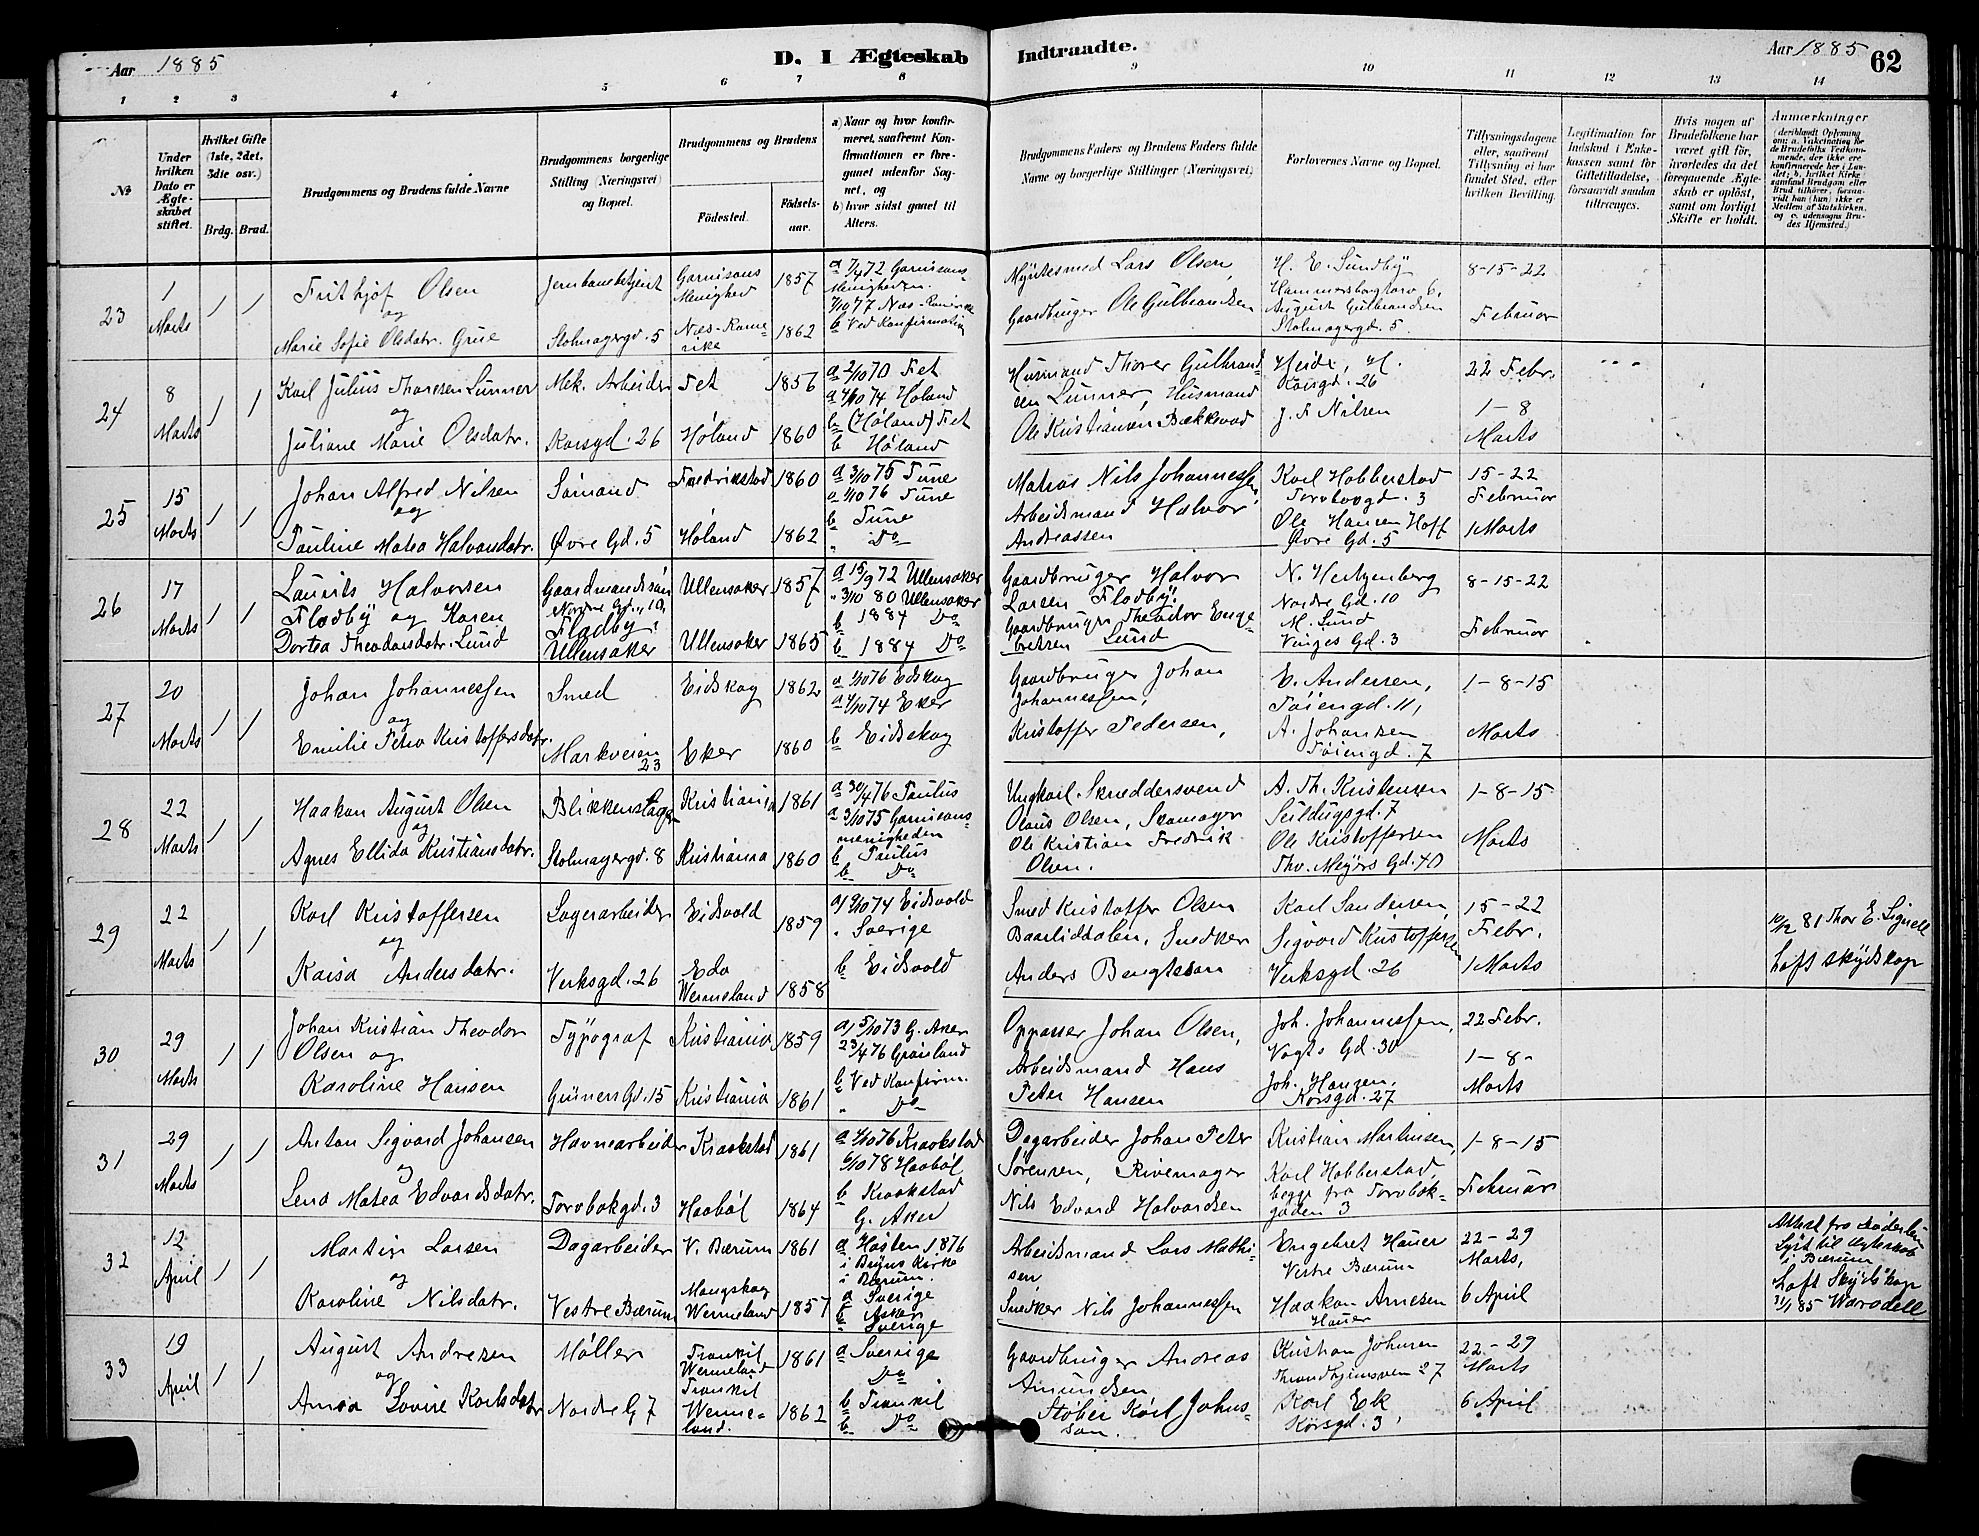 Aar 1885
D. I Ægteskab Indtraadte.
Aar 1885
62
1 2 3 4 5 6 7 8 9 10 11 12 13 14
№
Under hvilken Dato er Ægteskabet stiftet.
Hvilket Gifte (1ste, 2det, 3die osv.)
Brdg. Brud.
Brudgommens og Brudens fulde Navne
Brudgommens borgerlige Stilling (Næringsvei) og Bopæl.
Brudgommens og Brudens
Födested.
Födselsaar.
a) Naar og hvor konfirmeret, saafremt Konfirmationen er foregaaet udenfor Sognet, og
b) hvor sidst gaaet til Alters.
Brudgommens Faders og Brudens Faders fulde Navne og borgerlige Stillinger (Næringsvei)
Forlovernes Navne og Bopæl.
Tillysningsdagene eller, saafremt Tillysning ei har fundet Sted, efter hvilken Bevilling.
Legitimation for Indskud i Enkekassen samt for Giftetilladelse, forsaavidt saadan tiltrænges.
Hvis nogen af Brudefolkene har været gift før, hvorledes da det foregaaende Ægteskab er oplöst, samt om lovligt Skifte er holdt.
Anmærkninger (deriblandt Oplysning om: a. Vakcination for de Brudefolks Vedkommende, der ikke ere konfirmerede her i Landet; b. hvilket Kirkesamfund Brudgom eller Brud tilhörer, forsaavidt han (hun) ikke er Medlem af Statskirken, og c. udensogns Brudes Hjemsted.)
23
1 Marts
1 1
Frithjof Olsen
og
Marie Sofie Olsdatr. Grue
Jernbanebetjent
Stolmagergd. 5
Garnisons Menighed
Næs-Romerike
1857
1862
a 7/4 72 Garnisons-
Menigheden.
7/10 77 Næs-Romerike
b Ved Konfirmation
Myntesmed Lars Olsen,
Gaardbruger Ole Gulbrandsen
H. E. Sundby
Hammersborgtorv 6,
August Gulbrandsen
Stolmagergd. 5.
8-15-22
Februar
24
8 Marts
1 1
Karl Julius Thoresen Lunner
og
Juliane Marie Olsdatr.
Mek. Arbeider
Korsgd. 26
Fet
Høland
1856
1860
a 2/10 70 Fet
a 4/10 74 Høland
b (Høland) Fet
b Høland
Husmand Thorer Gulbrand-
sen Lunner, Husmand
Ole Kristiansen Bækkevad
Heide, H.
Korsgd. 26
J. F. Nilsen
22 Febr.
1-8
Marts
25
15 Marts
1 1
Johan Alfred Nilsen
og
Pauline Matea Halvorsdatr.
Sømand
Øvre Gd. 5
Fredrikstad
Høland
1860
1862
a 3/10 75 Tune
a 1/10 76 Tune
b Tune
" Do
Matros Nils Johannessen,
Arbeidsmand Halvor
Andreassen
Karl Hobberstad
Torvbakgd. 3
Ole Hansen Hoff
Øvre Gd. 5
15-22
Februar
1 Marts
26
17 Marts
1 1
Laurits Halvorsen
Flodby og Karen
Dortea Theodorsdatr. Lund
Gaardmandssøn
Nordre Gd. 10,
Flodby,
Ullensaker
Ullensaker
Ullensaker
1857
1865
a 15/9 72 Ullensaker
" 3/10 80 Ullensaker
b 1884 Do
b 1884 Do
Gaardbruger Halvor
Larsen Flodby,
Gaardbruger Theodor Enge-
bretsen Lund
N. Hertzenberg
Nordre Gd. 10
M. Lund
Vinjes Gd. 3
8-15-22
Februar
27
20 Marts
1 1
Johan Johannessen
og
Emilie Petra Kristoffersdatr.
Smed
Markveien 23
Eidskog
Eker
1862
1860
a 1/10 76 Eidskog
a 4/10 74 Eker
b Eidskog
Gaardbruger Johan
Johannessen,
Kristoffer Pedersen,
E. Andersen,
Tøiengd. 11,
A. Johansen
Tøiengd. 7
1-8-15
Marts
28
22 Marts
1 1
Haakon August Olsen
og
Agnes Ellida Kristiansdatr.
Blikkenslager
Stolmagergd. 8
Kristiania
Kristiania
1861
1860
a 30/4 76 Paulus
a 3/10 75 Garnisons-
menigheden
b Paulus
b Do
Ungkarl Skreddersvend
Olaus Olsen, Skomager
Ole Kristian Fredrik
Olsen.
A. Th. Kristensen
Seildugsgd. 7
Ole Kristoffersen
Thv. Meyers Gd. 40
1-8-15
Marts
29
22 Marts
1 1
Karl Kristoffersen
og
Kaisa Andersdatr.
Lagerarbeider
Verksgd. 26
Eidsvold
Eda Wermeland
1859
1858
a) 9/10 74 Eidsvold
" Sverige
b Eidsvold
Smed Kristoffer Olsen
Baarliddalen, Snedker
Anders Bengtsson
Karl Sandersen,
Sigvard Kristoffersen
Verksgd. 26
15-22
Febr.
1 Marts
10/12 81 Thor E. Signell
haft skydskop
30
29 Marts
1 1
Johan Kristian Theodor
Olsen og
Karoline Hansen
Typograf
Grüners Gd. 15
Kristiania
Kristiania
1859
1861
a) 5/10 73 G. Aker
23/4 76 Grønland
b Ved Konfirm.
" Do
Oppasser Johan Olsen,
Arbeidsmand Hans
Peter Hansen
Joh. Johannessen,
Vogts Gd. 30
Joh. Hansen,
Korsgd. 27
22 Febr.
1-8-
Marts
31
29 Marts
1 1
Anton Sigvard Johansen
og
Lena Matea Edvardsdatr.
Havnearbeider
Torvbakgd. 3
Kraakstad
Haabøl
1861
1864
a 1/10 76 Kraakstad
6/10 78 Haabøl
b Kraakstad
G. Aker
Dagarbeider Johan Peter
Sørensen, Rivemager
Nils Edvard Halvordsen
Kristian Martinsen,
Karl Hobberstad,
begge fra Torvbak-
gaden 3
1-8-15
Februar
32
12 April
1 1
Martin Larsen
og
Karoline Nilsdatr.
Dagarbeider
Vestre Bærum
V. Bærum
Mangskog
Wermeland
1861
1857
a Høsten 1876
i Bryns Kirke
i Bærum.
a Sverige
b Asker
" Sverige
Arbeidsmand Lars Mathi-
sen
Snedker Nils Johannessen
Engebret Hauer
Vestre Bærum
Haakon Arnesen
Hauer
22-29
Marts,
6 April
Attest fra
Lyst til Ægteskab
i Bærum
haft Skydskop
31/1 85 Warodell
33
19 April
1 1
August Andresen
og
Anna Lovise Karlsdatr
Møller
Nordre G 7
Trankil
Wermeland
Trankil
Werme-
land.
1861
1862
a Sverige
Do
b Trankil
b Do
Gaardbruger Andreas
Amundsen,
Støber Karl Johns-
son.
Kristian Johnsen
Throndhjemsveien 27
Karl Ek
Korsgd. 3
22-29
Marts
6 April